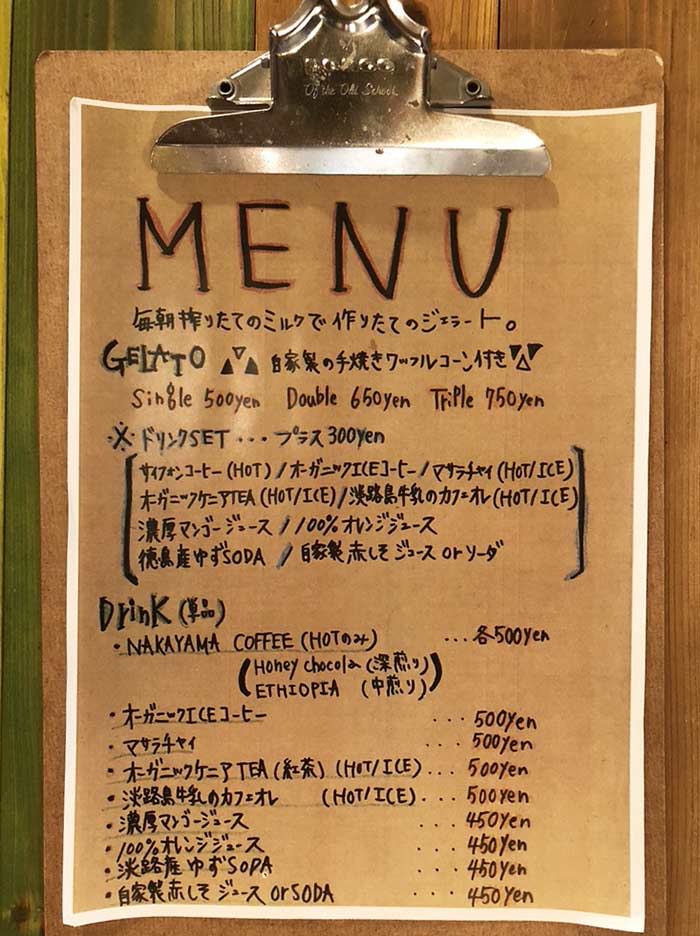 Of the Old School
MENU
毎朝搾りたてのミルクで作りたてのジェラート。
GELATO 自家製の手焼きワッフルコーン付き
Single 500yen Double 650yen Triple 750yen
※ドリンクSET・・・プラス300yen
サイフォンコーヒー(HOT)/オーガニックICEコーヒー/マサラチャイ(HOT/ICE)
オーガニックケニアTEA(HOT/ICE)/淡路島牛乳のカフェオレ(HOT/ICE)
濃厚マンゴージュース/100%オレンジジュース
徳島産ゆずSODA/自家製赤しそジュースorソーダ
Drink(単品)
・NAKAYAMA COFFEE(HOTのみ) ...各500yen
(Honey chocola(深煎り)
ETHIOPIA (中煎り))
・オーガニックICEコーヒー ...500yen
・マサラチャイ ...500yen
・オーガニックケニアTEA(紅茶)(HOT/ICE)...500yen
・淡路島牛乳のカフェオレ (HOT/ICE)...500yen
・濃厚マンゴージュース ...450yen
・100%オレンジジュース ...450yen
・淡路産ゆずSODA ...450yen
・自家製赤しそジュースorSODA ...450yen